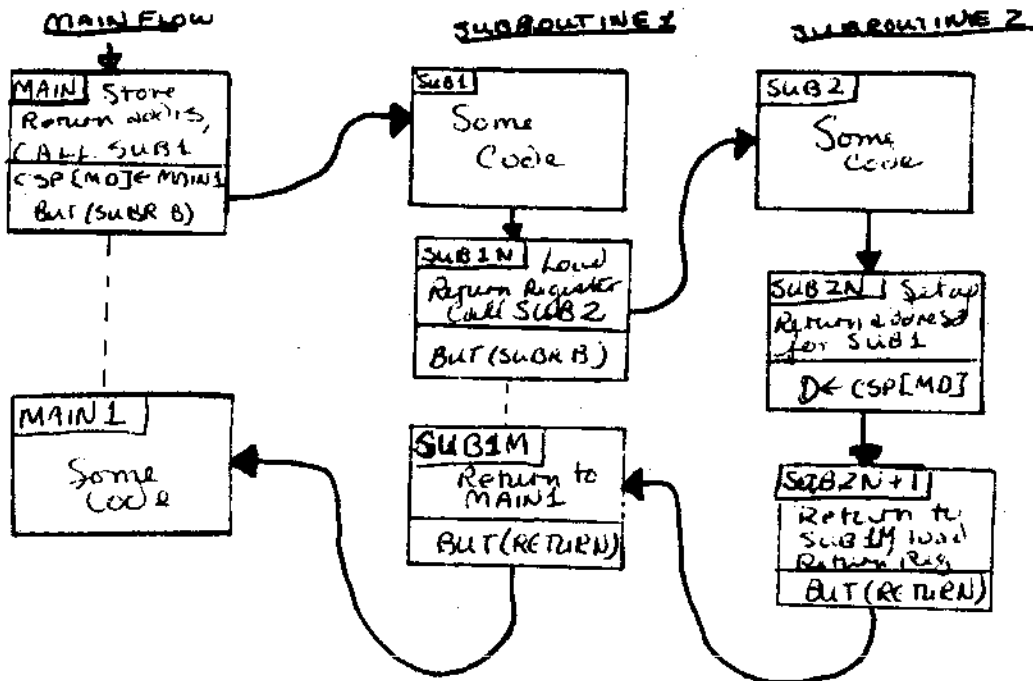 MAIN FLOW
MAIN Store
Return
CALL SUB1
CSP[MD]←MAIN1
BUT(SUBR B)
MAIN1
Some
Code
SUBROUTINE 1
SUB1
Some
Code
SUB1N Load
Return Register
Call SUB2
BUT(SUBR B)
SUB1M
Return to
MAIN1
BUT(RETURN)
SUBROUTINE 2
SUB2
Some
code
SUB2N Setup
Return address
for SUB1
D←CSP[MD]
SUB2N+1
Return to
SUB1M load
Return Reg
BUT(RETURN)